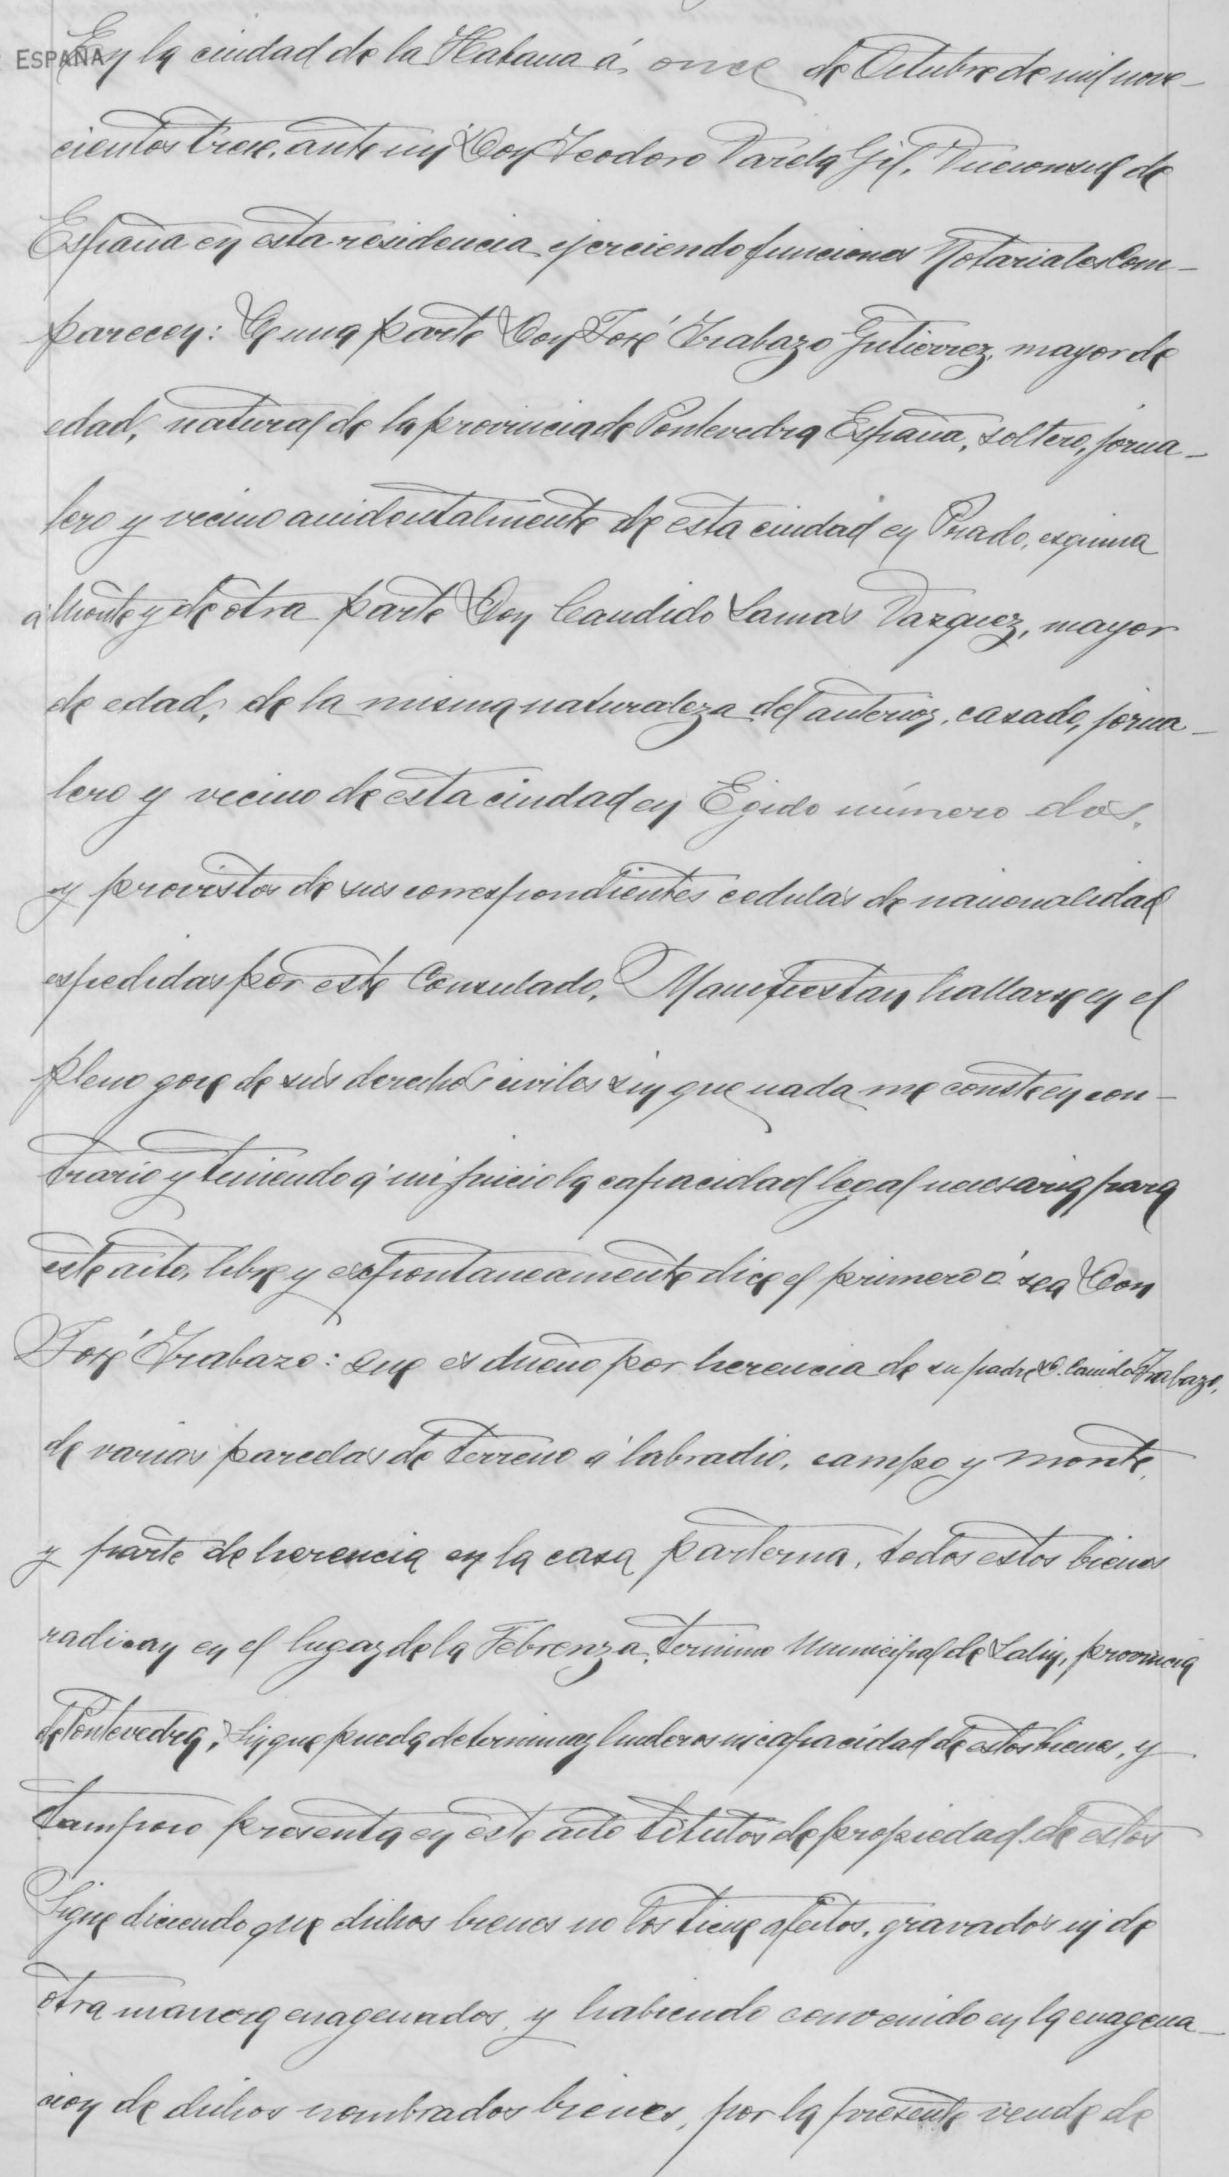 ESPAÑA
En la ciudad de la Habana á once de Octubre de mil nove-
cientos trece, ante mi Don Teodoro Varela Gil, Vicecónsul de
España en esta residencia ejerciendo funciones Notariales Com-
parecen: De una parte Don José Trabazo Gutierrez, mayor de
edad, natural de la provincia de Pontevedra España, soltero, jorna-
lero y vecino accidentalmente de esta ciudad en Prado, esquina
a Monte y de otra parte Don Candido Lamas Vazquez, mayor
de edad, de la misma naturaleza del anterior, casado, jorna-
lero y vecino de esta ciudad en Egido número dos.
y provistos de sus correspondientes cedulas de nacionalidad
espedidas por este Consulado, Manifiestan hallarse en el
pleno goce de sus derechos civiles sin que nada me conste en con-
trario y teniendo a mi juicio la capacidad legal necesaria para
este acto, libre y espontaneamente dice el primero ó sea Don
José Trabazo: que es dueño por herencia de su padre D. Camilo Trabazo,
de varias parcelas de terreno a labradio, campo y monte,
y parte de herencia en la casa parterna, todos estos bienes
radican en el lugar de la Febrenza, termino Municipal de Lalin, provincia
de Pontevedra, Sin que pueda determinar linderos ni capacidad de estos bienes, y
tampoco presenta en este acto titutos de propiedad de estos
Sigue diciendo que dichos bienes no los tiene afectos, gravados ni de
otra manera enagenados, y habiendo convenido en la enagena-
cion de dichos nombrados bienes, por la presente vende de